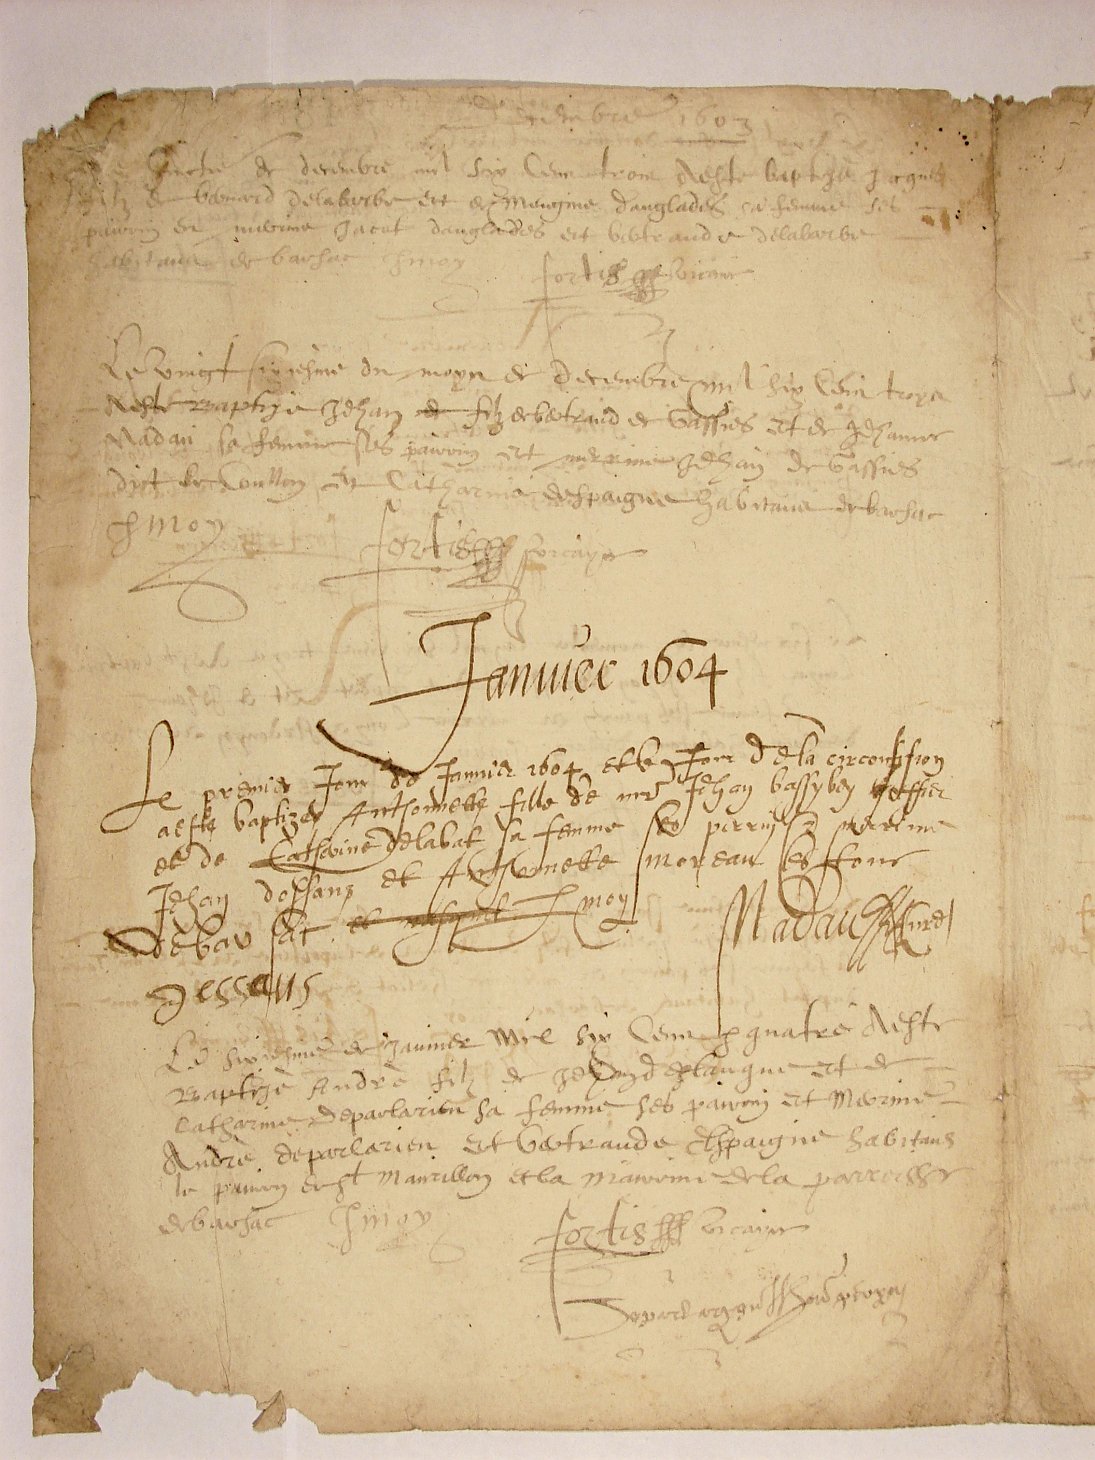 Decembre 1603
de decembre mil six cens trois Aesté baptisé Jacques
filz de bernard delabarbe et de Mengine danglades sa femme ses
parrin et merrine Jacot danglades et bertrande delabarbe
habitans de barsac Pmoy fortis vicaire
Le vingt sixiesme du moys de decembre mil six cens troys
Aesté Baptizé Jehan de filz de bertrand de Vassies et de Jehanne
Nadau sa femme ses parrin et merrine Jehan de Vassies
dict et Catharine despaigne habitans de barsac
Pmoy fortis vicayre
Januier 1604
Le premier Jour de Januier 1604 et le Jour de la circonsision
aeste baptizee Anthonnette fille de mre Jehan bassybey greffier
et de Catherine delabat sa femme ses perrin et merrine
Jehan dossans et Anthonnette moreau
de barsac Pmoy Nadau
Dessans
Le sixiesme de Januier Mil six Cens quatre Aesté
Baptizé André filz de Jehan et de
Catharine deparlarieu sa femme ses parrin et Merrine
André deparlarieu et bertrande despaigne habitans
le parrin de St Maurillon et la marrine de la parroesse
de barsac Pmoy fortis vicayre